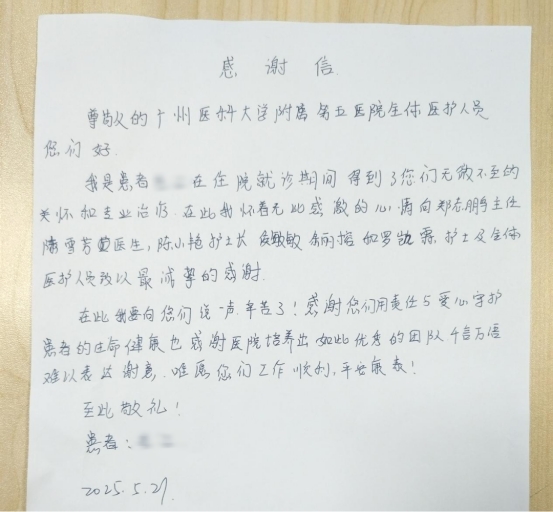 感谢信
尊敬的广州医科大学附属第五医院全体医护人员
您们好
我是患者 在住院就诊期间得到了您们无微不至的
关怀和专业治疗.在此我怀着无比感激的心情向郑志鹏主任
雪芳 医生,陈小艳护士长 敏 和罗凯霖护士及全体
医护人员致以最诚挚的感谢.
在此我要向您们说一声辛苦了!感谢您们用责任与爱心守护
患者的生命健康也感谢医院培养出如此优秀的团队.千言万语
难以表达谢意.唯愿您们工作顺利,平安康泰!
至此敬礼!
患者:
2025.5.27.